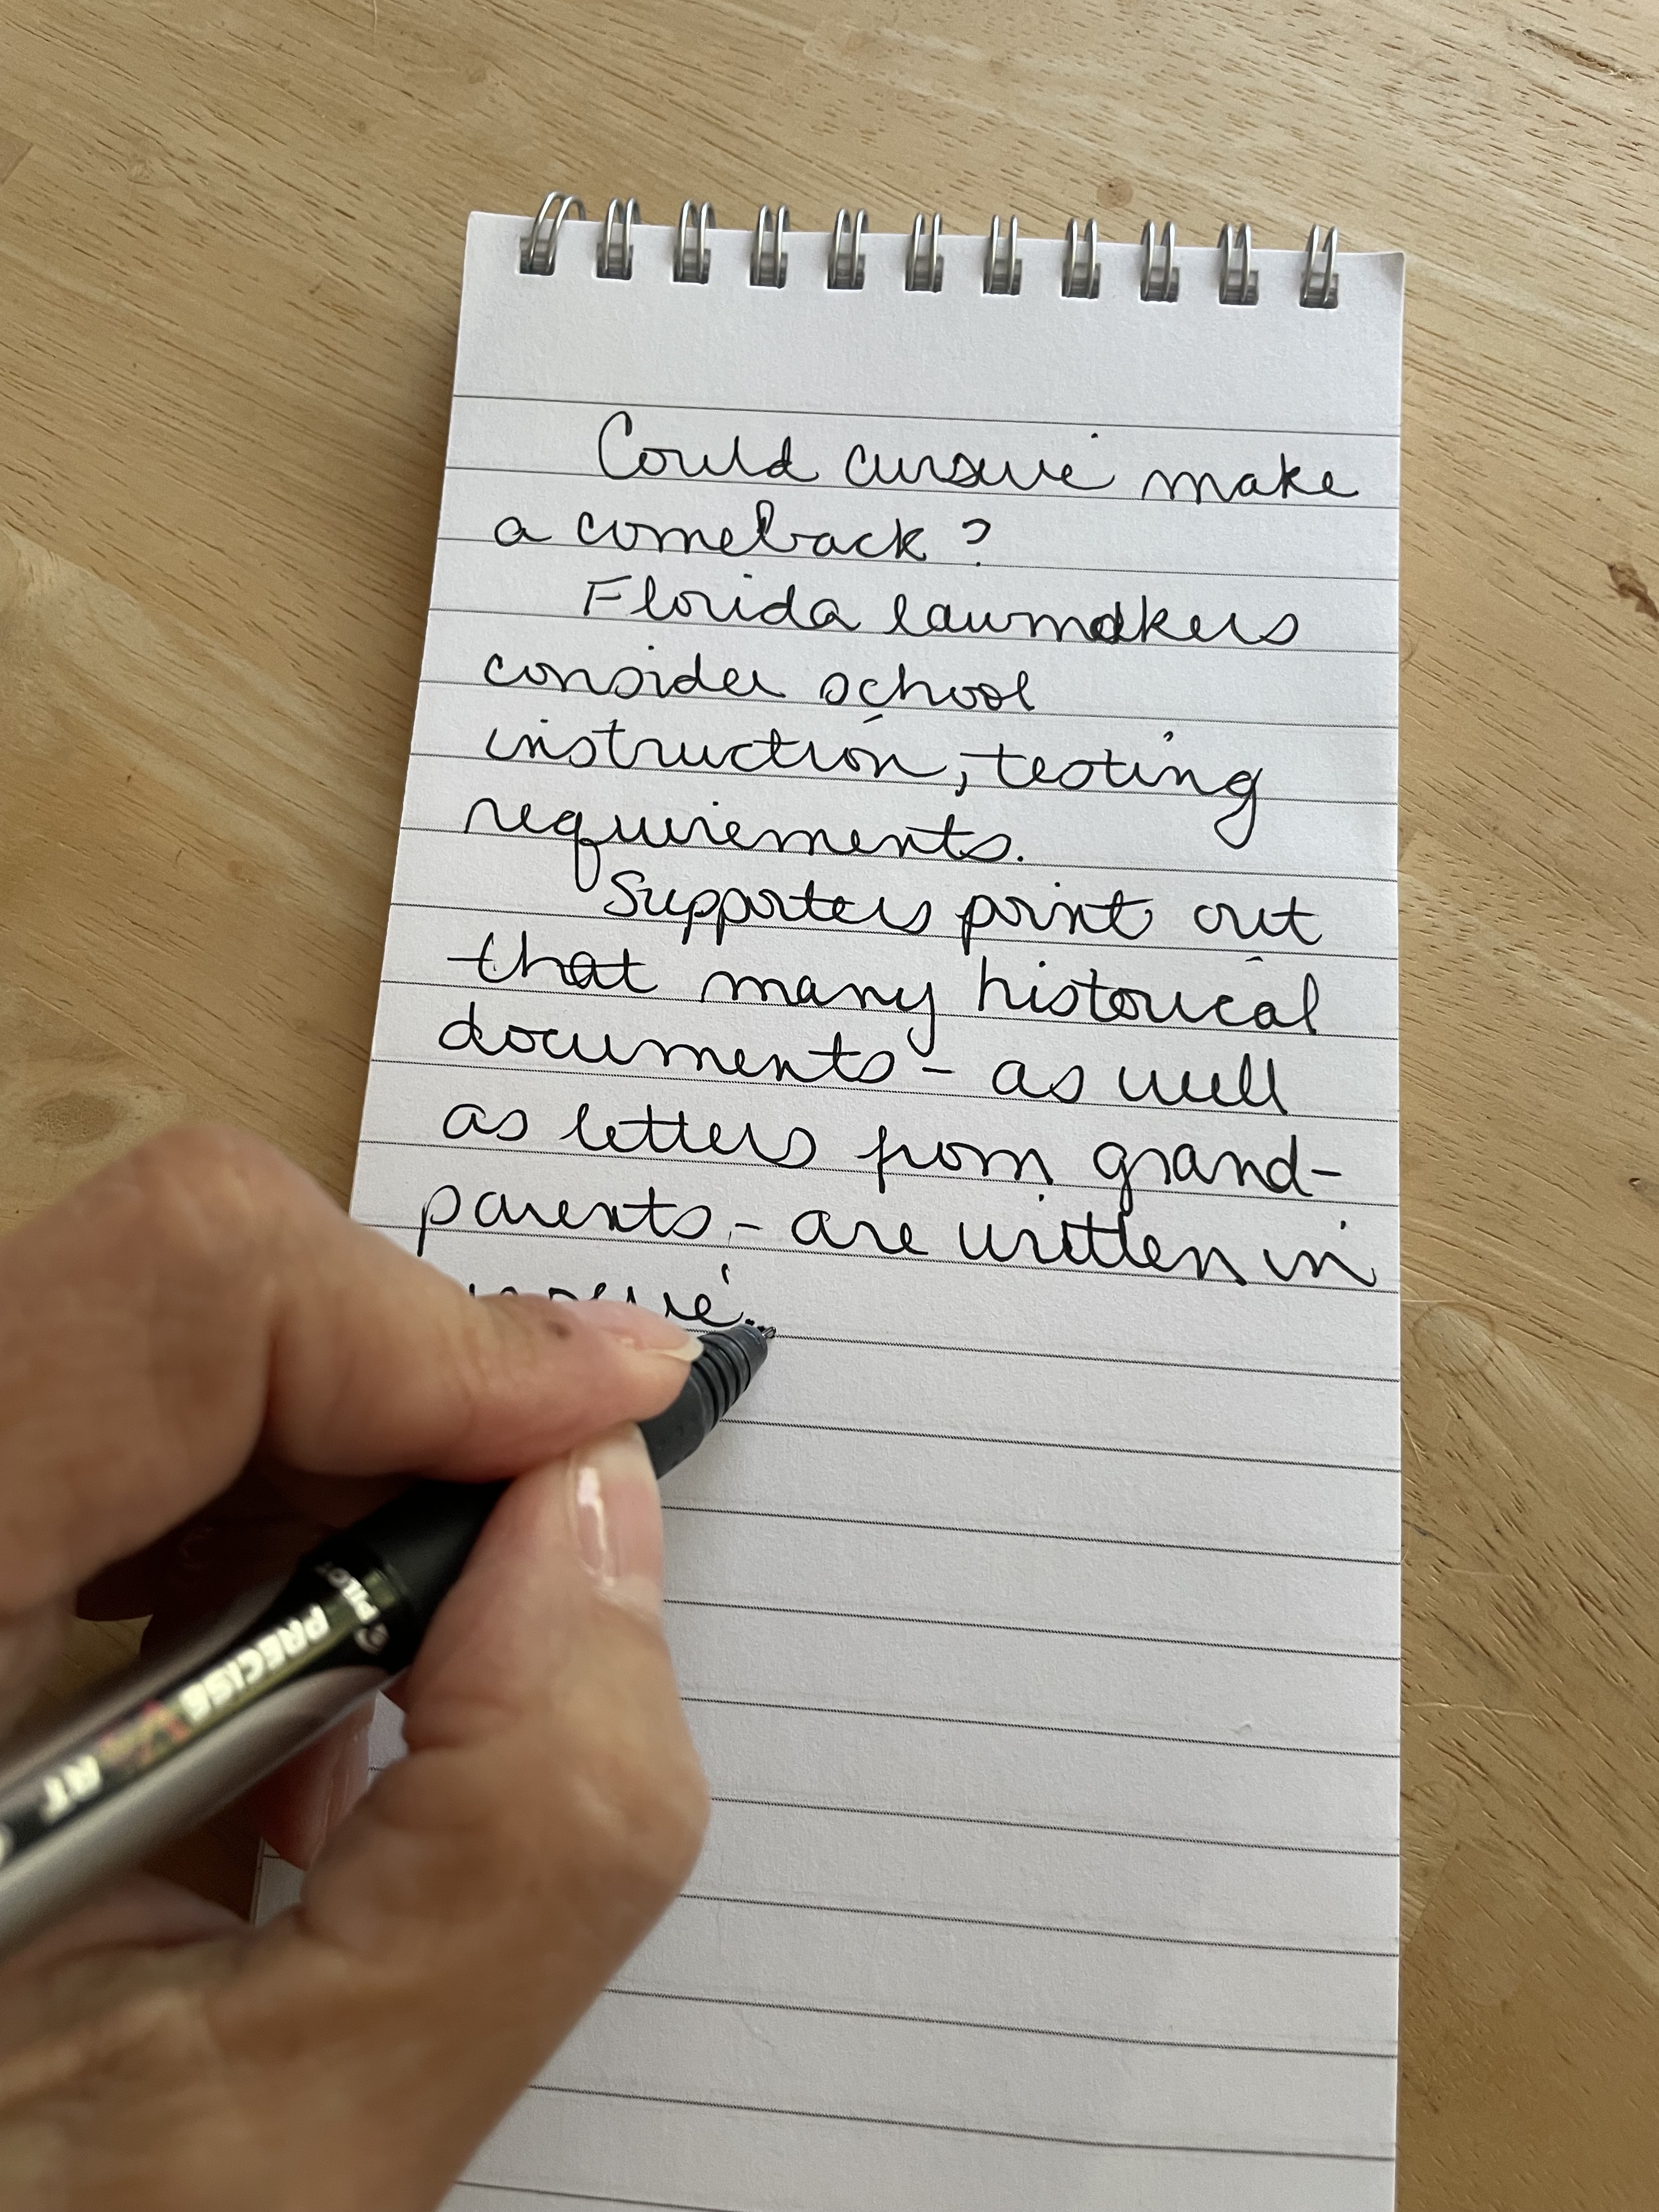 Could cursive make
a comeback?
Florida lawmakers
consider school
instruction, testing
requirements.
Supporters point out
that many historical
documents - as well
as letters from grand-
parents - are written in
cursive.
PILOT
PRECISE V5 RT